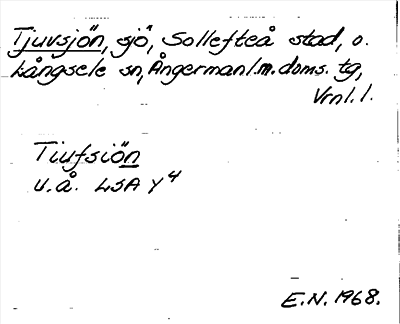 Tjuvsjön, sjö, Sollefteå stad, o.
Långsele sn, Ångermanl.m.doms. tg,
Vrnl.l.
Tiufsiön
u.å. LSA Y4
E.N. 1968.